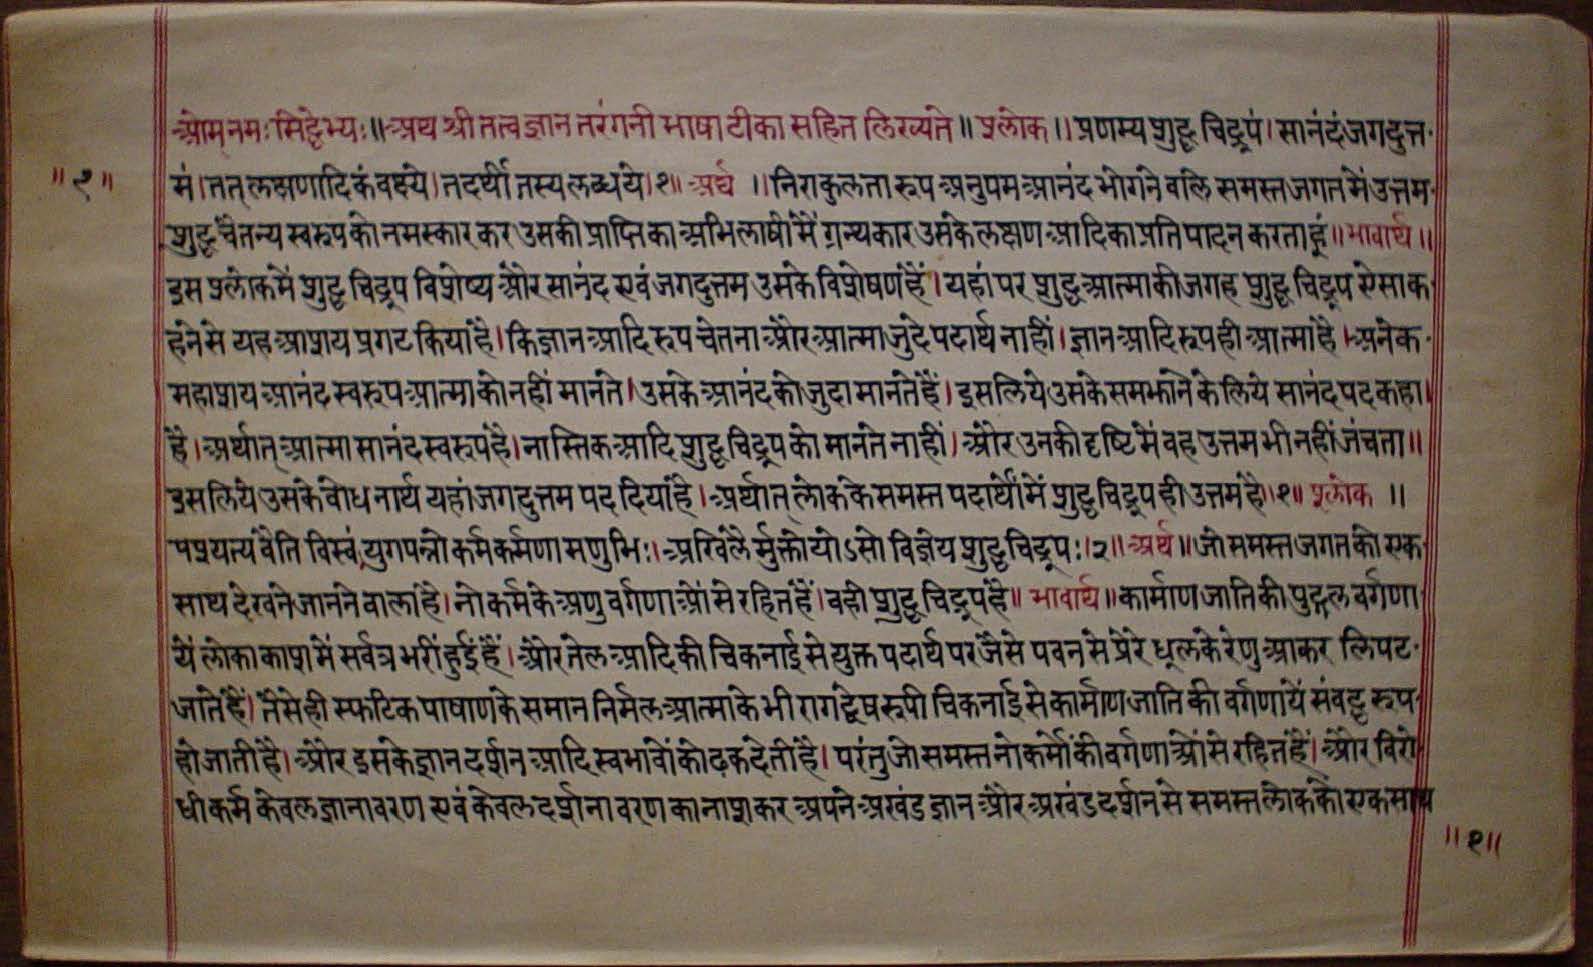 ओम् नमः सिद्धेभ्यः॥ अथ श्री तत्व ज्ञान तरंगनी भाषा टीका सहित लिख्यते॥ श्लोक॥ प्रणम्य शुद्ध चिद्रूपं। सानंदं जगदुत्त
॥१॥
मं। तत् लक्षणादिकं वक्ष्ये। तदर्थी तस्य लब्धये।१॥ अर्थ॥ निराकुलता रूप अनुपम आनंद भोगने वलि समस्त जगत में उत्तम
शुद्ध चैतन्य स्वरूप को नमस्कार कर उसकी प्राप्ति का अभिलाषी मैं ग्रन्यकार उसके लक्षण आदि का प्रतिपादन करता हूं॥ भावार्थ॥
इस श्लोक में शुद्ध चिद्रूप विशेष्य और सानंद एवं जगदुत्तम उसके विशेषण हैं। यहां पर शुद्ध आत्मा की जगह शुद्ध चिद्रूप ऐसा क
हने से यह आशय प्रगट किया है। कि ज्ञान आदि रूप चेतना और आत्मा जुदे पदार्थ नाहीं। ज्ञान आदि रूप ही आत्मा है। अनेक
महाशय आनंद स्वरूप आत्मा को नहीं मानते। उसके आनंद को जुदा मानते हैं। इसलिये उसके समझाने के लिये सानंद पद कहा।
है। अर्थात् आत्मा सानंद स्वरूप है। नास्तिक आदि शुद्ध चिद्रूप को मानते नाहीं। और उनकी दृष्टि में वह उत्तम भी नहीं जंचता॥
इसलिये उसके वोधनार्थ यहां जगदुत्तम पद दिया है। अर्थात् लोक के समस्त पदार्थों में शुद्ध चिद्रूप ही उत्तम है।१॥ श्लोक॥
पश्यत्य वैति विस्वं युगपन्नो कर्म कर्मणामणुभिः। अखिलै र्मुक्तो योऽसो विज्ञेय शुद्ध चिद्रूपः।२॥ अर्थ॥ जो समस्त जगत को एक
साथ देखने जानने वाला है। नो कर्म के अणु वर्गणाओं से रहित है। वही शुद्ध चिद्रूप है॥ भावार्थ॥ कार्माण जाति की पुद्गल वर्गणा
यें लोकाकाश में सर्वत्र भरीं हुई हैं। और तेल आदि की चिकनाई से युक्त पदार्थ पर जैसे पवन से प्रेरे धूल के रेणु आकर लिपट
जाते हैं। तैसे ही स्फटिक पाषाण के समान निर्मल आत्मा के भी राग द्वेष रूपी चिकनाई से कार्माण जाति की वर्गणायें संवद्ध रूप
हो जाती है। और इसके ज्ञान दर्शन आदि स्वभावों को ढक देती है। परंतु जो समस्त नो कर्मों की वर्गणाओं से रहित है। और विरो
धी कर्म केवल ज्ञानावरण एवं केवल दर्शनावरण का नाश कर अपने अखंड ज्ञान और अखंड दर्शन से समस्त लोक को एक साथ
॥१॥